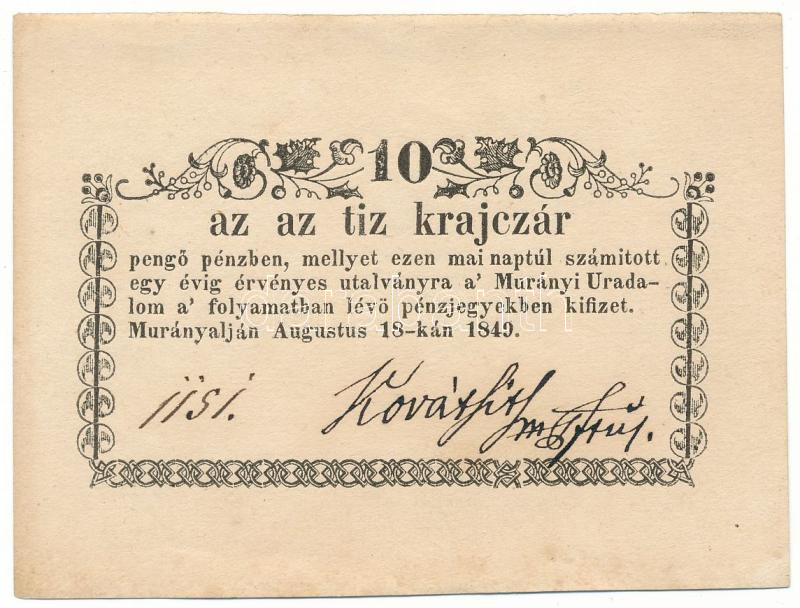 10
az az tiz krajczár
pengő pénzben, mellyet ezen mai naptúl számitott
egy évig érvényes utalványra a' Murányi Urada-
lom a' folyamatban lévő pénzjegyekben kifizet.
Murányalján Augustus 18-kán 1849.
1151.